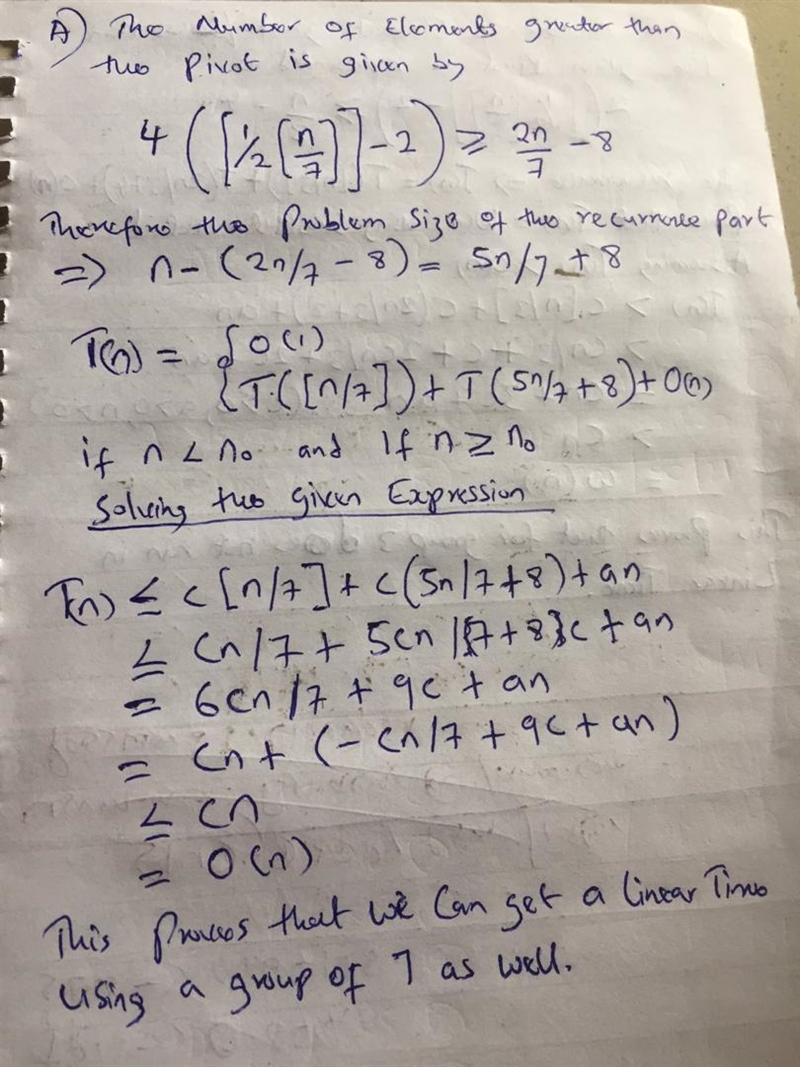 A) The Number of Elements greater than
the Pivot is given by
4 ([1/2 [n/7]] - 2) ≥ 2n/7 - 8
Therefore the Problem Size of the recurrence part
=> n - (2n/7 - 8) = 5n/7 + 8
T(n) = { O(1)
{ T([n/7]) + T(5n/7 + 8) + O(n)
if n < n₀ and If n ≥ n₀
Solving the given Expression
T(n) ≤ c[n/7] + c(5n/7+8) + an
≤ Cn/7 + 5cn/{7+8}c + an
= 6cn/7 + 9c + an
= cn + (-cn/7 + 9c + an)
≤ cn
= O(n)
This proves that we can get a linear Time
using a group of 7 as well.